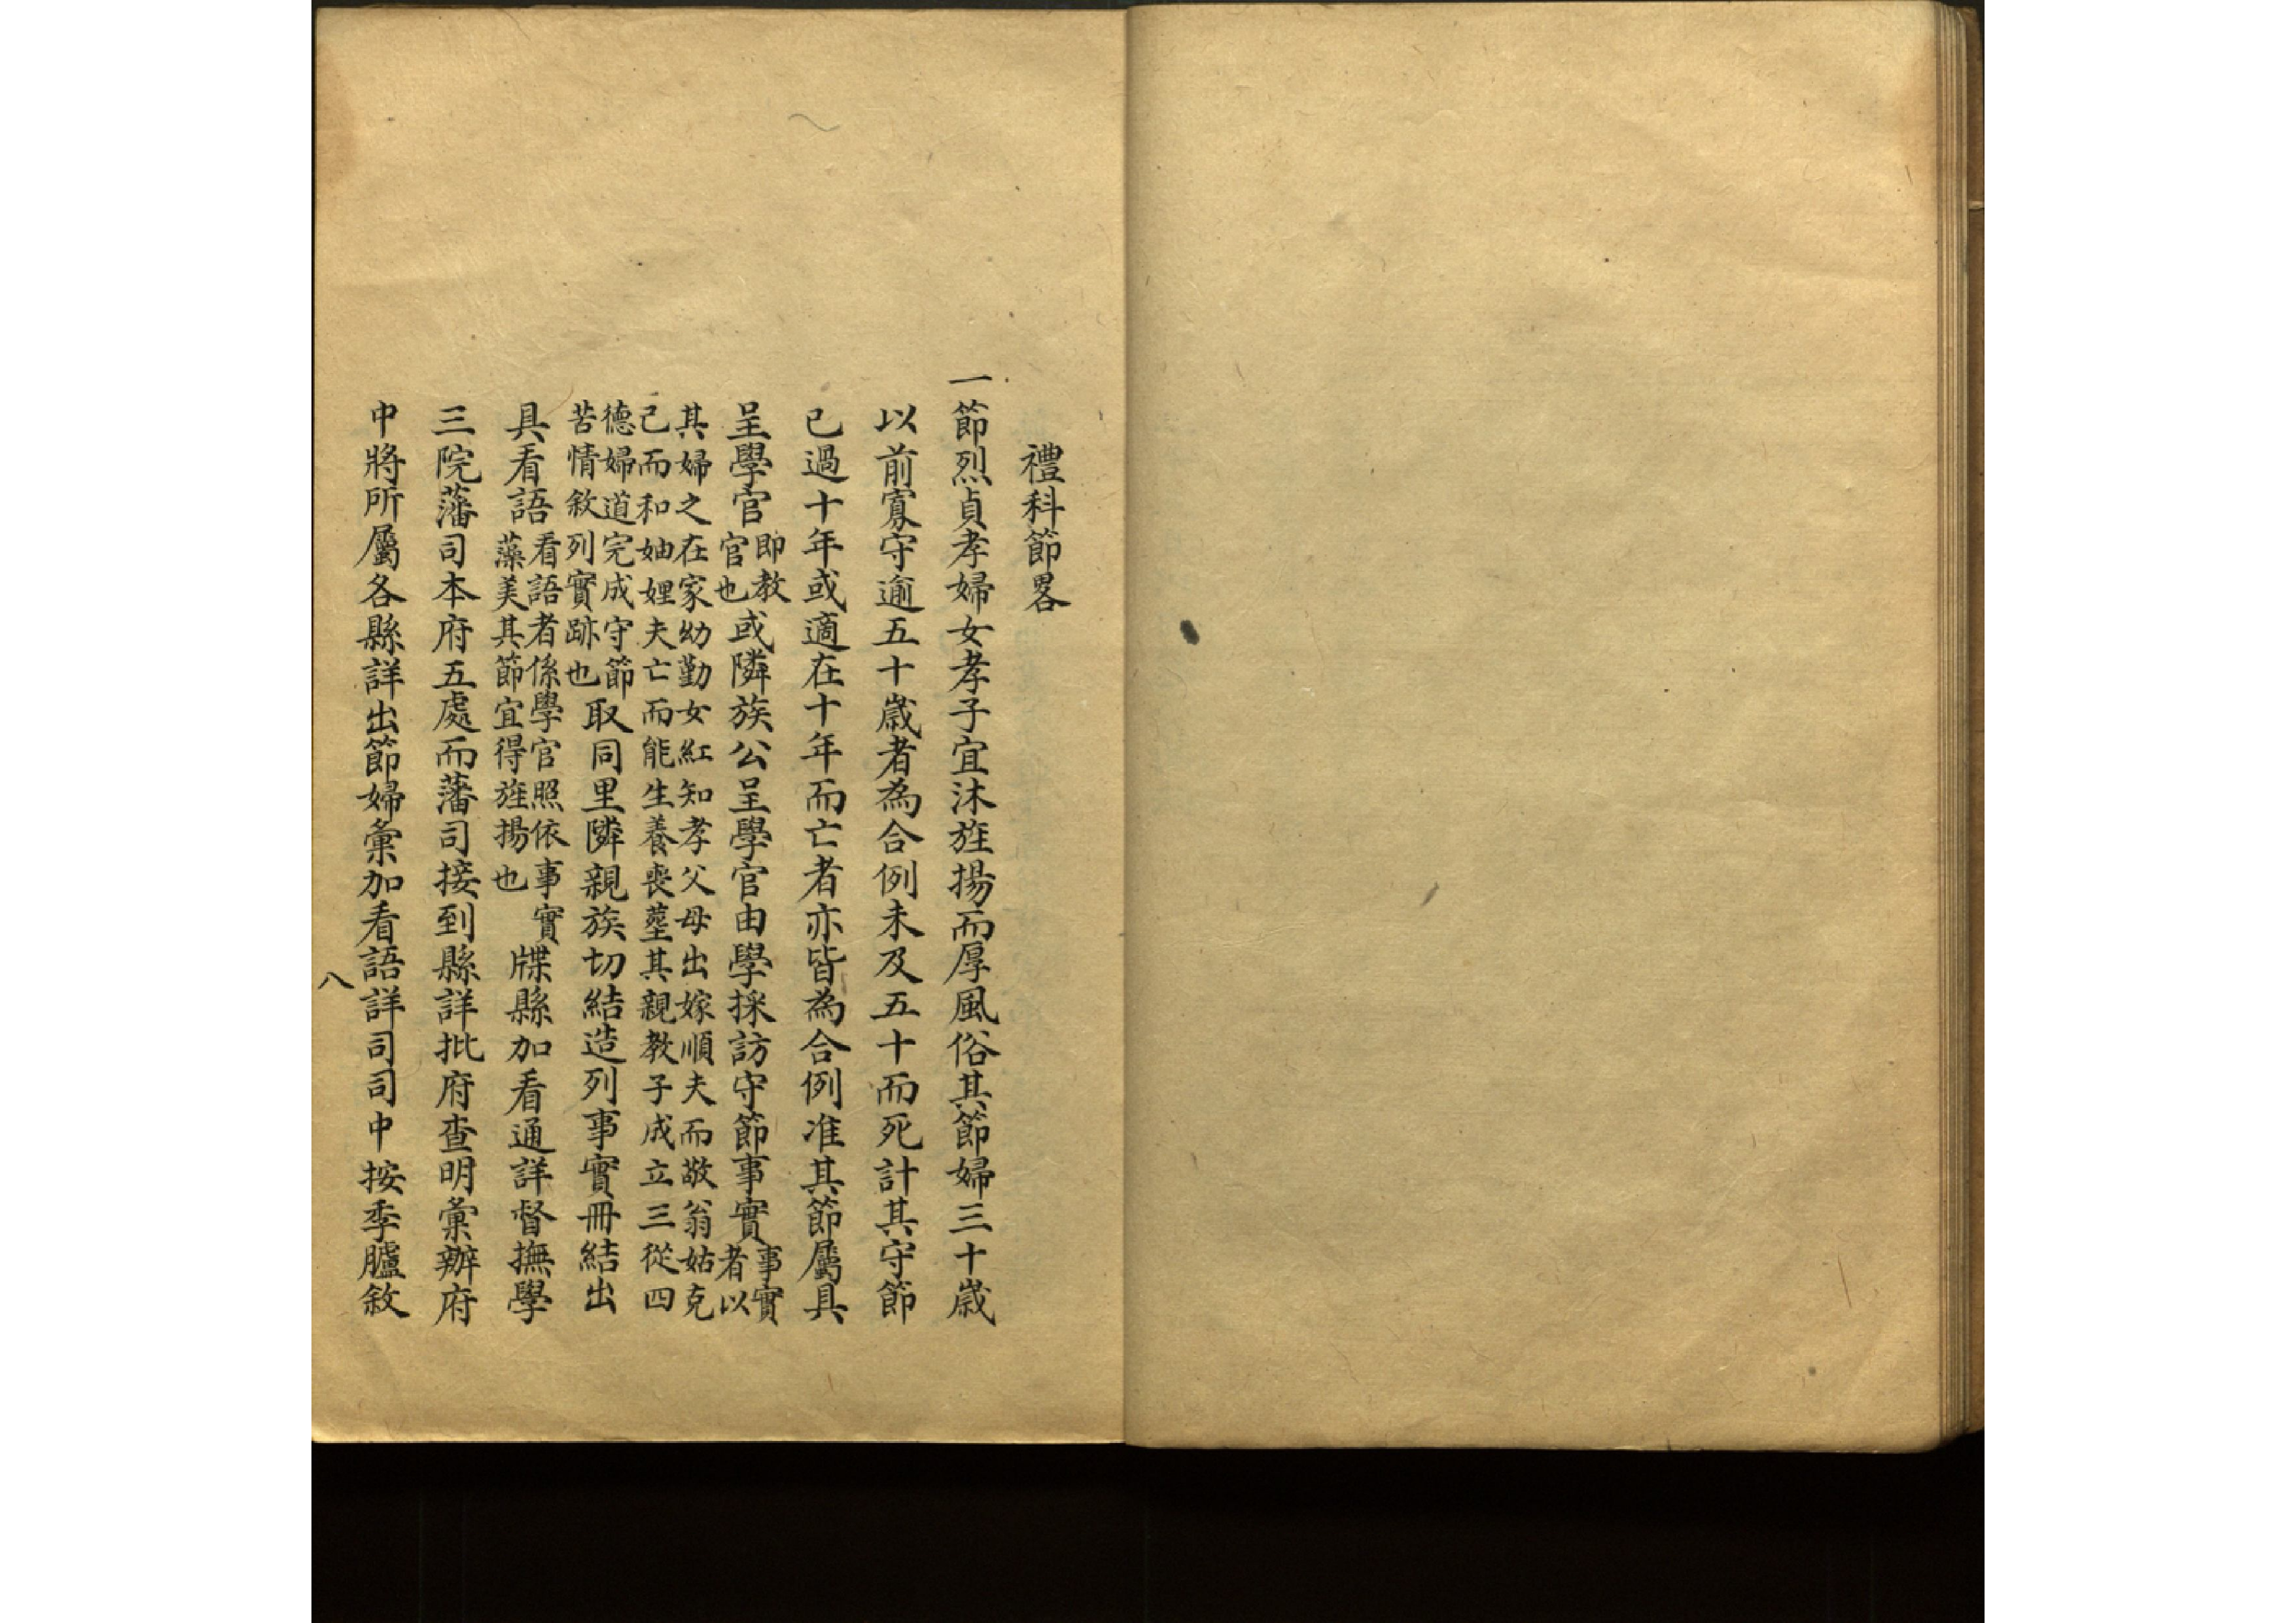 禮科節畧
一節烈貞孝婦女孝子宜沐旌揚而厚風俗其節婦三十歲
以前寡守逾五十歲者為合例未及五十而死計其守節
已過十年或適在十年而亡者亦皆為合例准其節屬具
呈學官即教官也或隣族公呈學官由學採訪守節事實事實者以
其婦之在家幼勤女紅知孝父母出嫁順夫而敬翁姑克
己而和妯娌夫亡而能生養喪塟其親教子成立三從四
德婦道完成守節
苦情敘列實跡也取同里隣親族切結造列事實冊結出
具看語看語者係學官照依事實藻美其節宜得旌揚也牒縣加看通詳督撫學
三院藩司本府五處而藩司接到縣詳批府查明彙辦府
中將所屬各縣詳出節婦彙加看語詳司司中按季臚敘
八